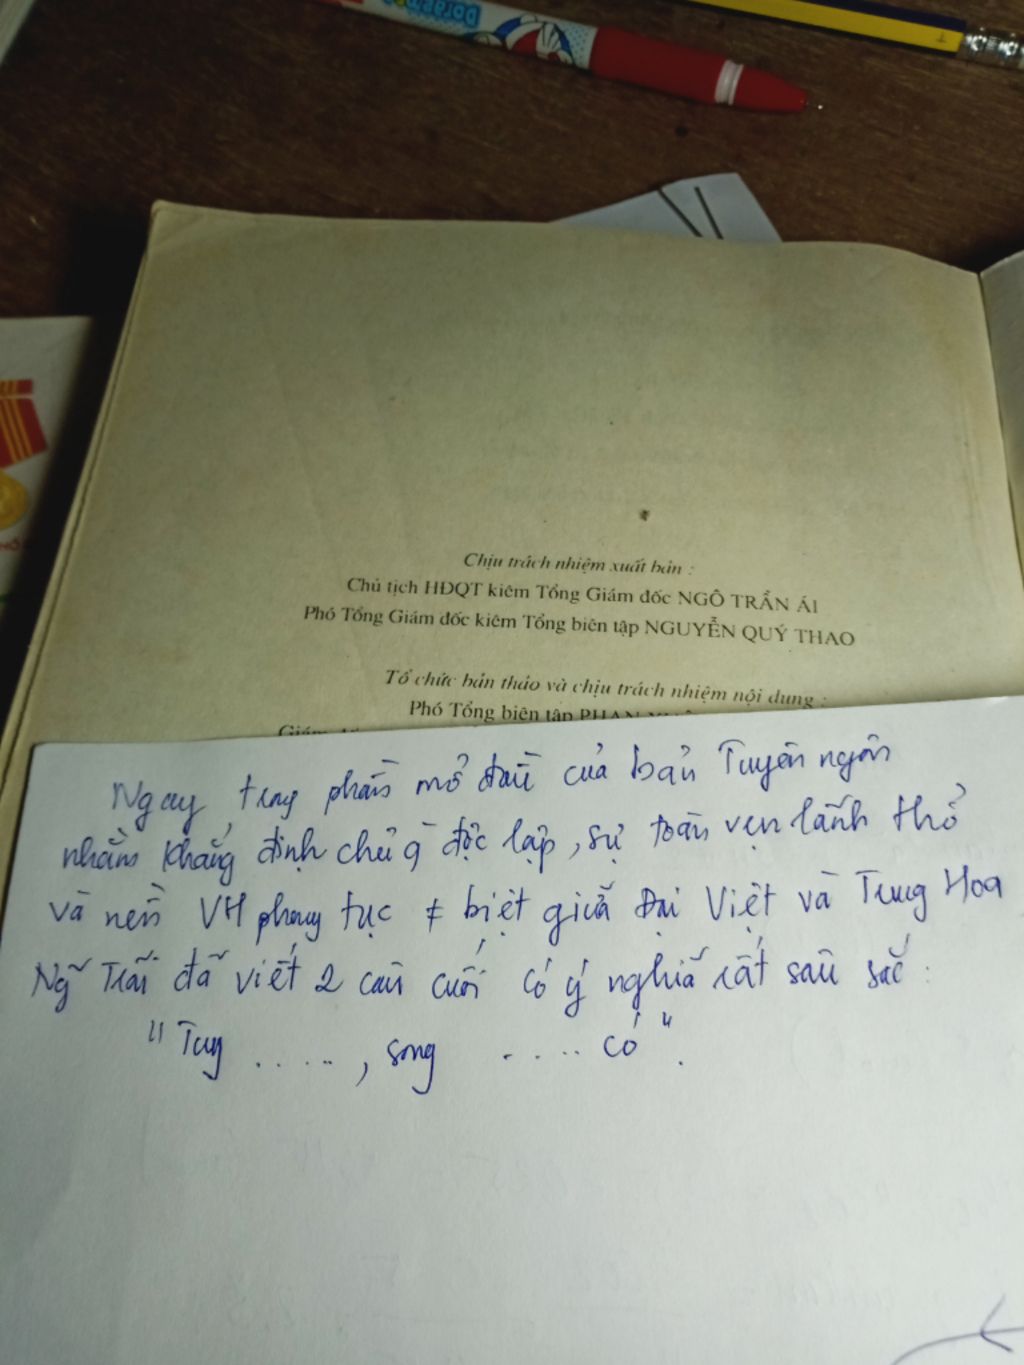 Doraemon
Chịu trách nhiệm xuất bản :
Chủ tịch HĐQT kiêm Tổng Giám đốc NGÔ TRẦN ÁI
Phó Tổng Giám đốc kiêm Tổng biên tập NGUYỄN QUÝ THAO
Tổ chức bản thảo và chịu trách nhiệm nội dung :
Phó Tổng biên tập PHAN
Giám
Ngay trong phần mở đầu của bản Tuyên ngôn
nhằm khẳng định chủ q` độc lập, sự toàn vẹn lãnh thổ
và nền VH phong tục ≠ biệt giữa Đại Việt và Trung Hoa
Ng~ Trãi đã viết 2 câu cuối có ý nghĩa rất sâu sắc :
"Tuy ....., song ..... có".